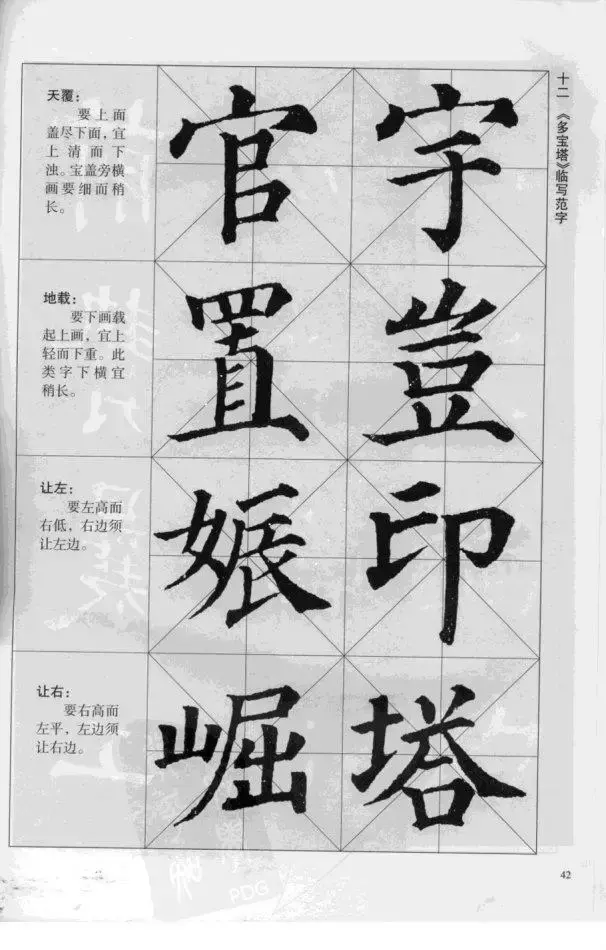 十二 《多宝塔》临写范字
天覆：
要上面
盖尽下面，宜
上清而下
浊。宝盖旁横
画要细而稍
长。
宇
官
地载：
要下画载
起上画，宜上
轻而下重。此
类字下横宜
稍长。
豈
置
让左：
要左高而
右低，右边须
让左边。
印
娠
让右：
要右高而
左平，左边须
让右边。
塔
崛
42
PDG